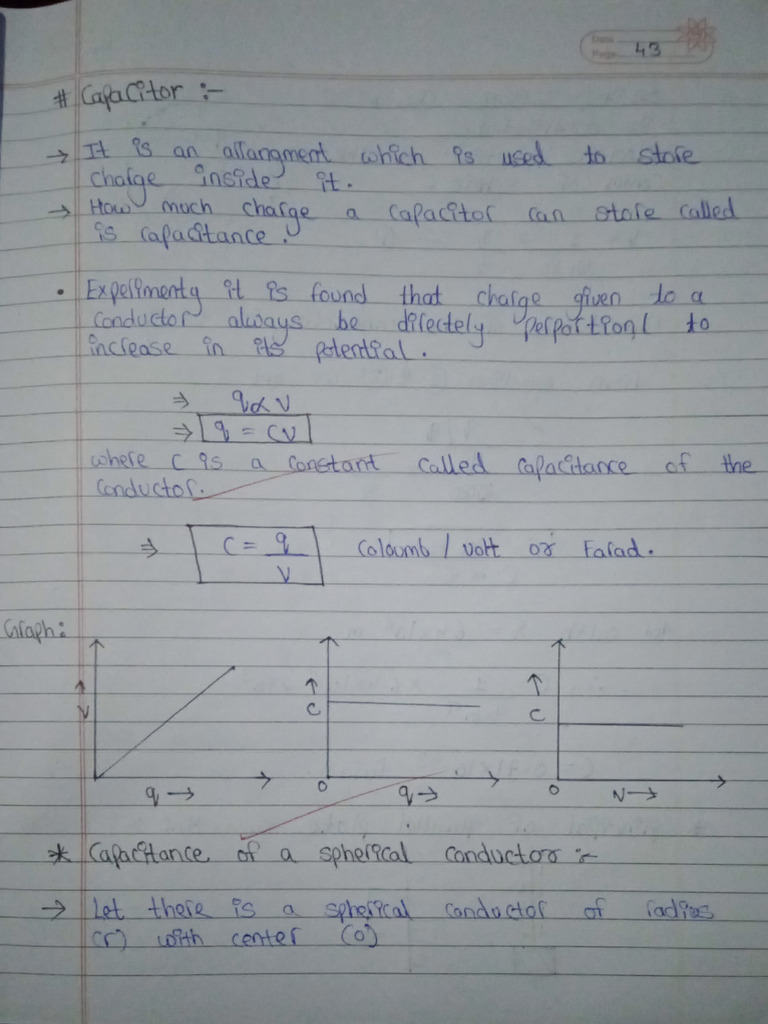 Date
Page 43
# Capacitor :-
→ It is an arrangment which is used to store
charge inside it.
→ How much charge a capacitor can store called
is capacitance.
• Experimenty it is found that charge given to a
conductor always be directely perportionl to
increase in its potential.
⇒ q∝V
⇒ q = CV
where C is a constant called capacitance of the
conductor.
⇒ C = q/V Coloumb / volt or Farad.
Graph:
↑ V
q →
↑ C
O
q →
↑ C
O
V →
* Capacitance of a spherical conductor :-
→ Let there is a spherical conductor of radius
(r) with center (O)